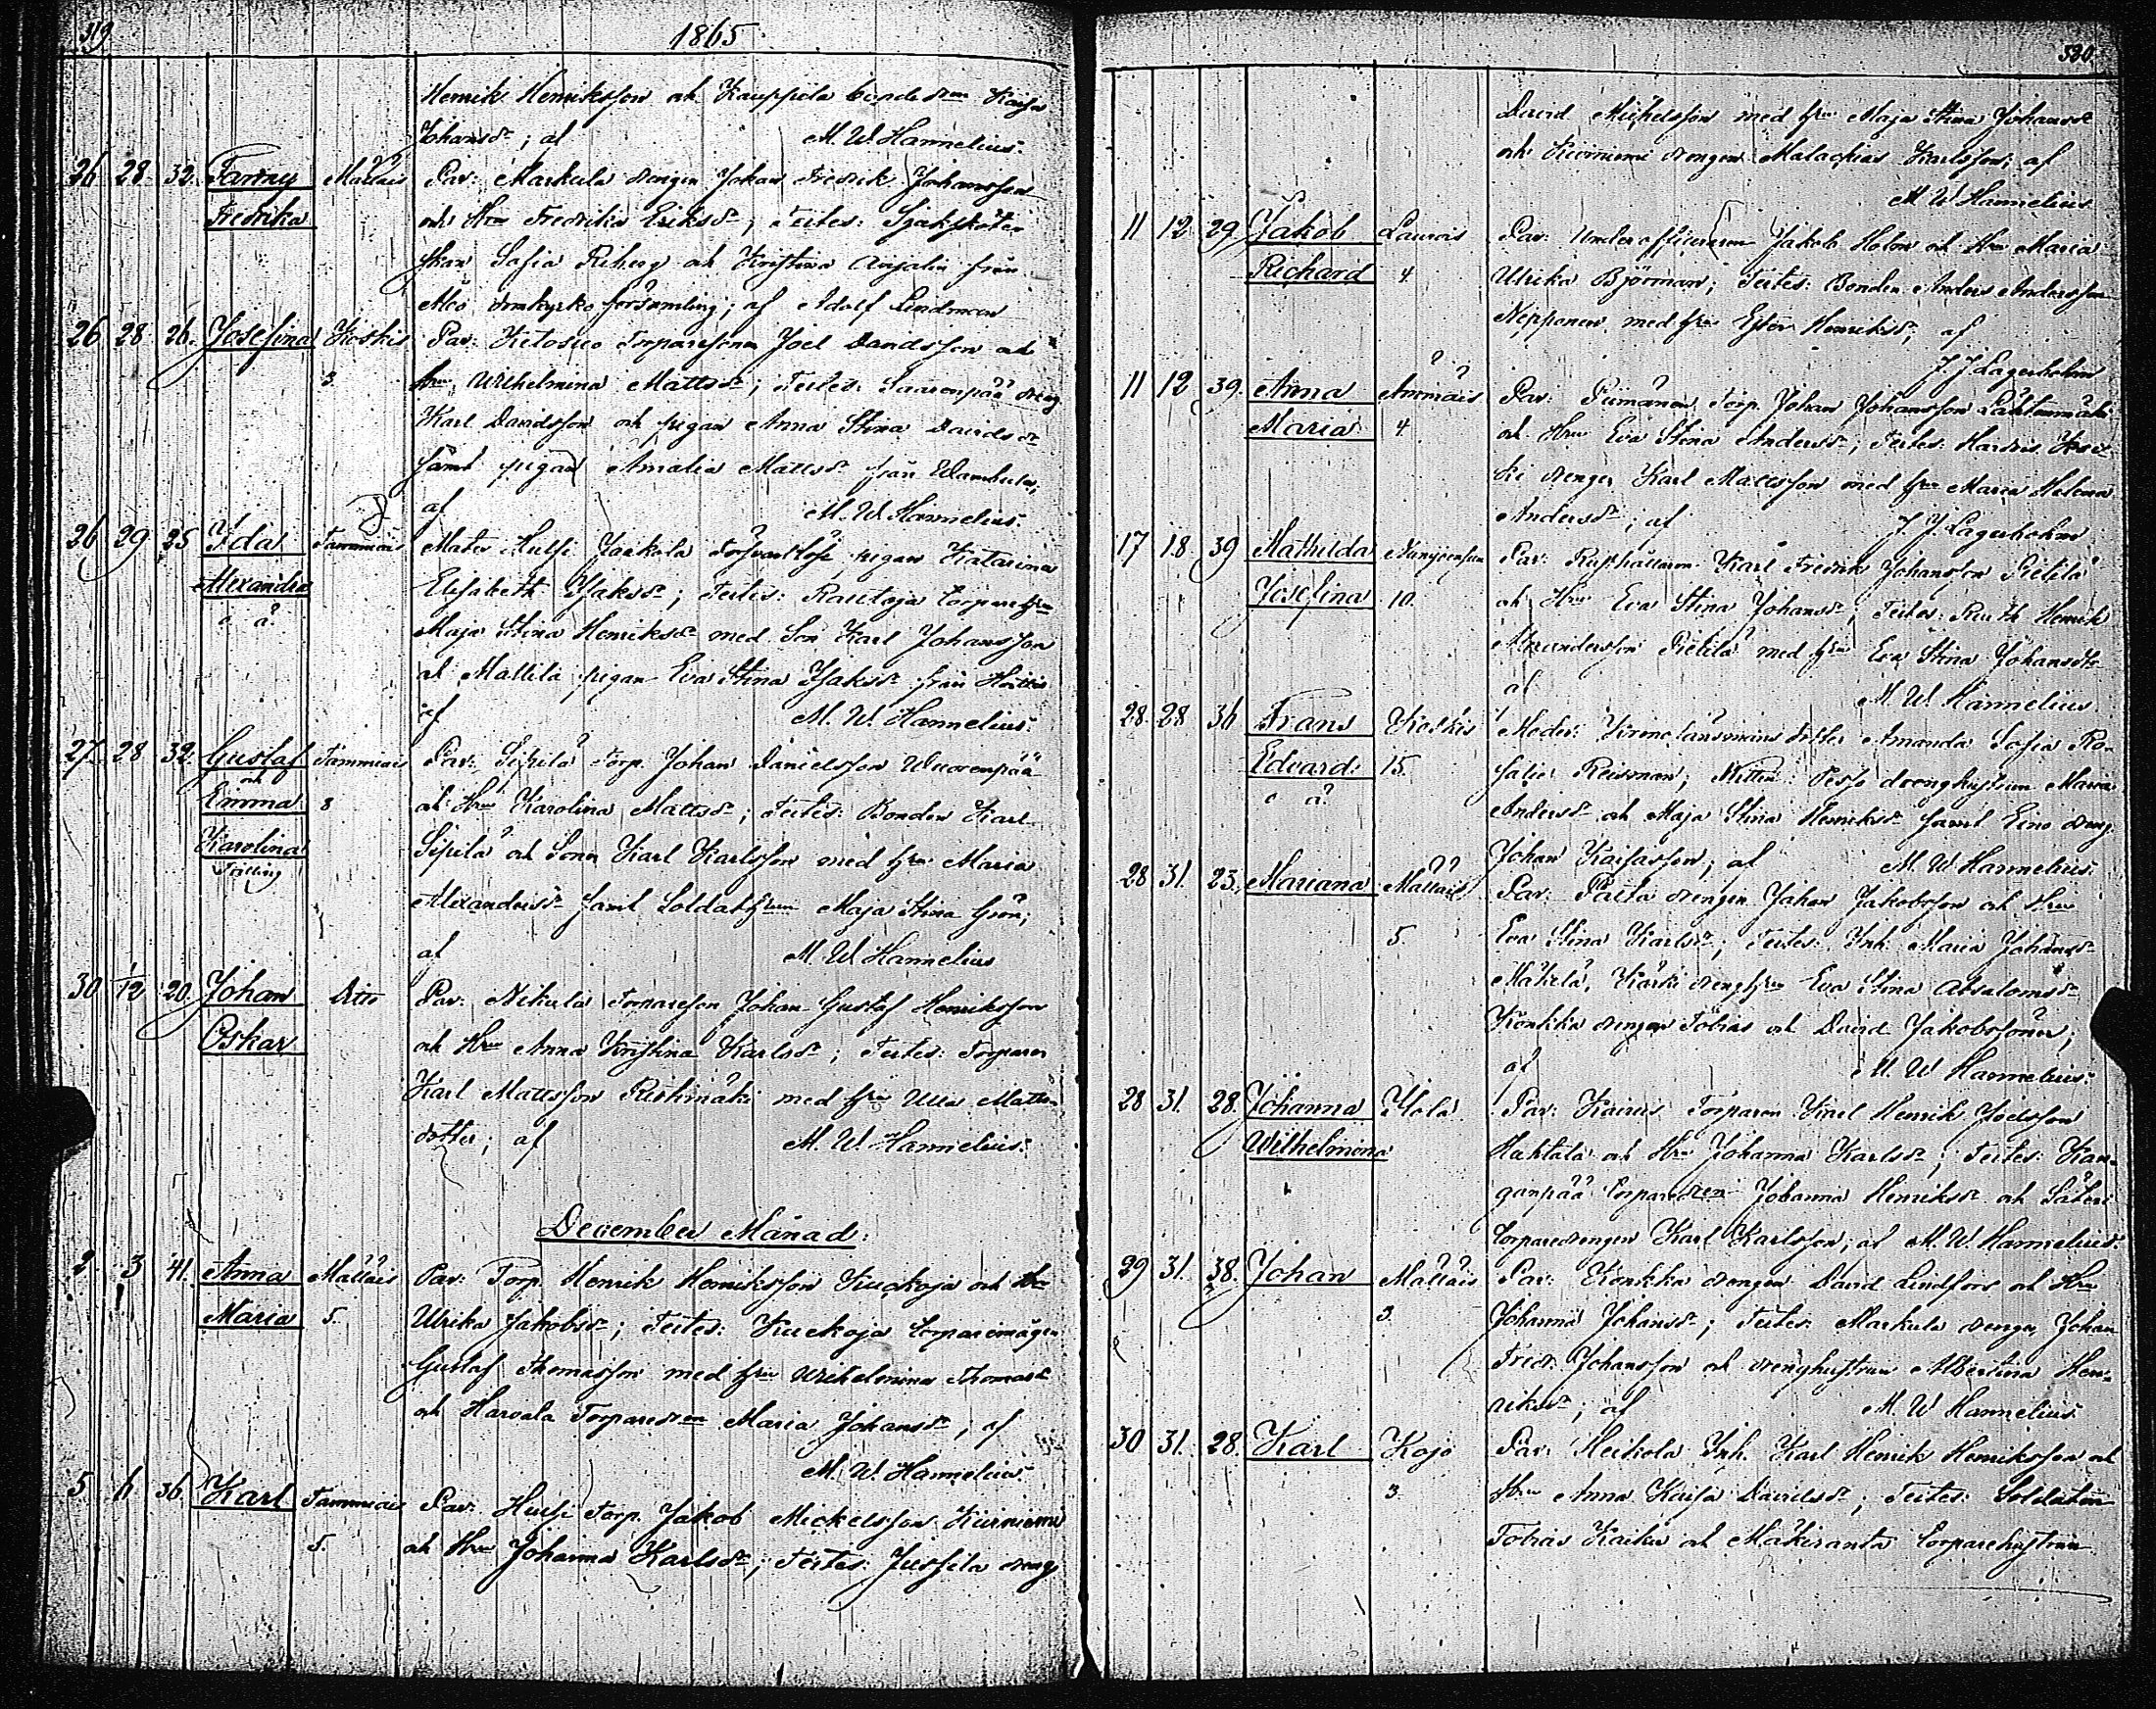 319
1865
Henrik Henriksson och Kauppila bonde dren Kaisa
Johansdr; af M. W. Hannelius.
26 28 32. Fanny Mattais Par: Markula drengen Johan Fredrik Johansson
Fredrika och Hru Fredrika Eriksdr; Testes: Sjakfköten
fkan Sofia Riberg och Kristina Anjalin från
Åbo domkyrko församling; af Adolf Lindman
26 28 26. Josefina Koskis Par: Ketosuo Torparesonen Joel Davidsson och
3. Hru Wilhelmina Mattsdr; Testes: Saarenpää dreng
Karl Davidsson och pigan Anna Stina Davidsdr
samt pigan Amalia Mattsdr från Wambula;
af M. W. Hannelius.
26 29 25 Ida Tammiais Mater Huhti Jaakola Försvarslösa pigan Katarina
Alexandra Elisabeth Isaksdr; Testes: Rautoja torpare hru
o ä. Maja Stina Henriksdr med Son Karl Johansson
och Mattila pigan Eva Stina Isaksdr från Hvittis
af M. W. Hannelius.
27. 28 32. Gustaf Tammiais Par: Sipilä Torp. Johan Danielsson Wuorenpää
och
Emma 8 och Hru Karolina Mattsdr; Testes: Bonden Karl
Karolina Sipilä och Sonen Karl Karlsson med hru Maria
Trilling Alexandersdr samt Soldat hrun Maja Stina Grön;
af M. W Hannelius
30 1/12 20. Johan Otto Par: Nikula Torpareson Johan Gustaf Henriksson
Oskar och Hru Anna Kristina Karlsdr; Testes: Torparen
Karl Mattsson Ristimäki med hru Ulla Matts-
dotter; af M. W. Hannelius.
December Månad.
2 3 41. Anna Mattais Par: Torp. Henrik Henriksson Kuckoja och Hru
Maria 5. Ulrika Jakobsdr; Testes: Kuckoja torparemågen
Gustaf Thomasson med hru Wilhelmina Thomasdr
och Harvala Torparedren Maria Johansdr; af
M. W. Hannelius.
5 6 36. Karl Tammiais Par: Huhti Torp. Jakob Mickelsson Kiviniemi
5. och Hru Johanna Karlsdr; Testes: Jussila dreng
320.
David Michelsson med hru Maja Stina Johansdr
och Kiviniemi drengen Malachias Karlsson; af
M. W Hannelius
11 12 29 Jakob Lauvais Par: Underofficeraren Jakob Holm och Hru Maria
Richard 4. Ulrika Björman; Testes: Bonden Anders Andersson
Nepponen med hru Ester Henriksdr; af
J. J Lagerholm
11 12 39. Anna Ammäis Par: Piimänen Torp. Johan Johansson Lähteenmäki
Maria 4. och Hru Eva Stina Andersdr; Testes:
ki drengen Karl Mattsson med hru Maria Helena
Andersdr; af J. J. Lagerholm
17 18 39 Mathilda Par: Rusthållaren Karl Fredrik Johansson Pietilä
Josefina 10. och Hru Eva Stina Johansdr; Testes: Rusth Henrik
Alexandersson Pietilä med hru Eva Stina Johansdtr
af M. W Hannelius
28. 28 36 Frans Koskis Moder: Kronolänsmans dotter Amanda Sofia Ro-
Edvard 15. salie Reisman; Vittnen: Pesjo drenghustrun Maria
o ä. Andersdr och Maja Stina Henriksdr samt Eino dreng
Johan Kaisasson; af M. W Hannelius.
28 31. 23. Mariana Mattais Par: Paita drengen Johan Jakobsson och Hru
5. Eva Stina Karlsdr; Testes: Inh. Maria Johansdr
Mäkelä, Kärki dreng hru Eva Stina Absalomsdr
Konkka drengar Tobias och David Jakobssöner;
af M. W Hannelius.
28 31. 28. Johanna Yhola Par: Kairis Torparen Karl Henrik Joelsson
Wilhelmina Huhtala och Hru Johanna Karlsdr; Testes: Kan-
ganpää torparedren Johanna Henriksdr och Säteri
torparedrengen Karl Karlsson; af M. W. Hannelius.
29 31. 38. Johan Mattais Par: Konkka drengen David Lindfors och Hru
3. Johanna Johansdr; Testes: Markula drengen Johan
Fredr. Johansson och drenghustrun Albertina Hen-
riksdr; af M. W Hannelius.
30 31. 28. Karl Kojo Par: Heikola Inh. Karl Henrik Henriksson och
3. Hru Anna Kaisa Davidsdr; Testes: Soldaten
Tobias Kaiku och Mäkiranta torparehustrun